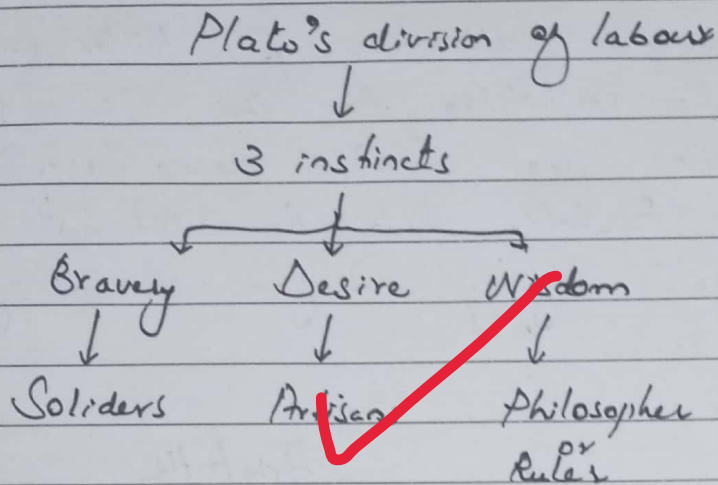 Plato's division of labour
3 instincts
Bravery Desire Wisdom
Soliders Artisan Philosopher
or
Ruler